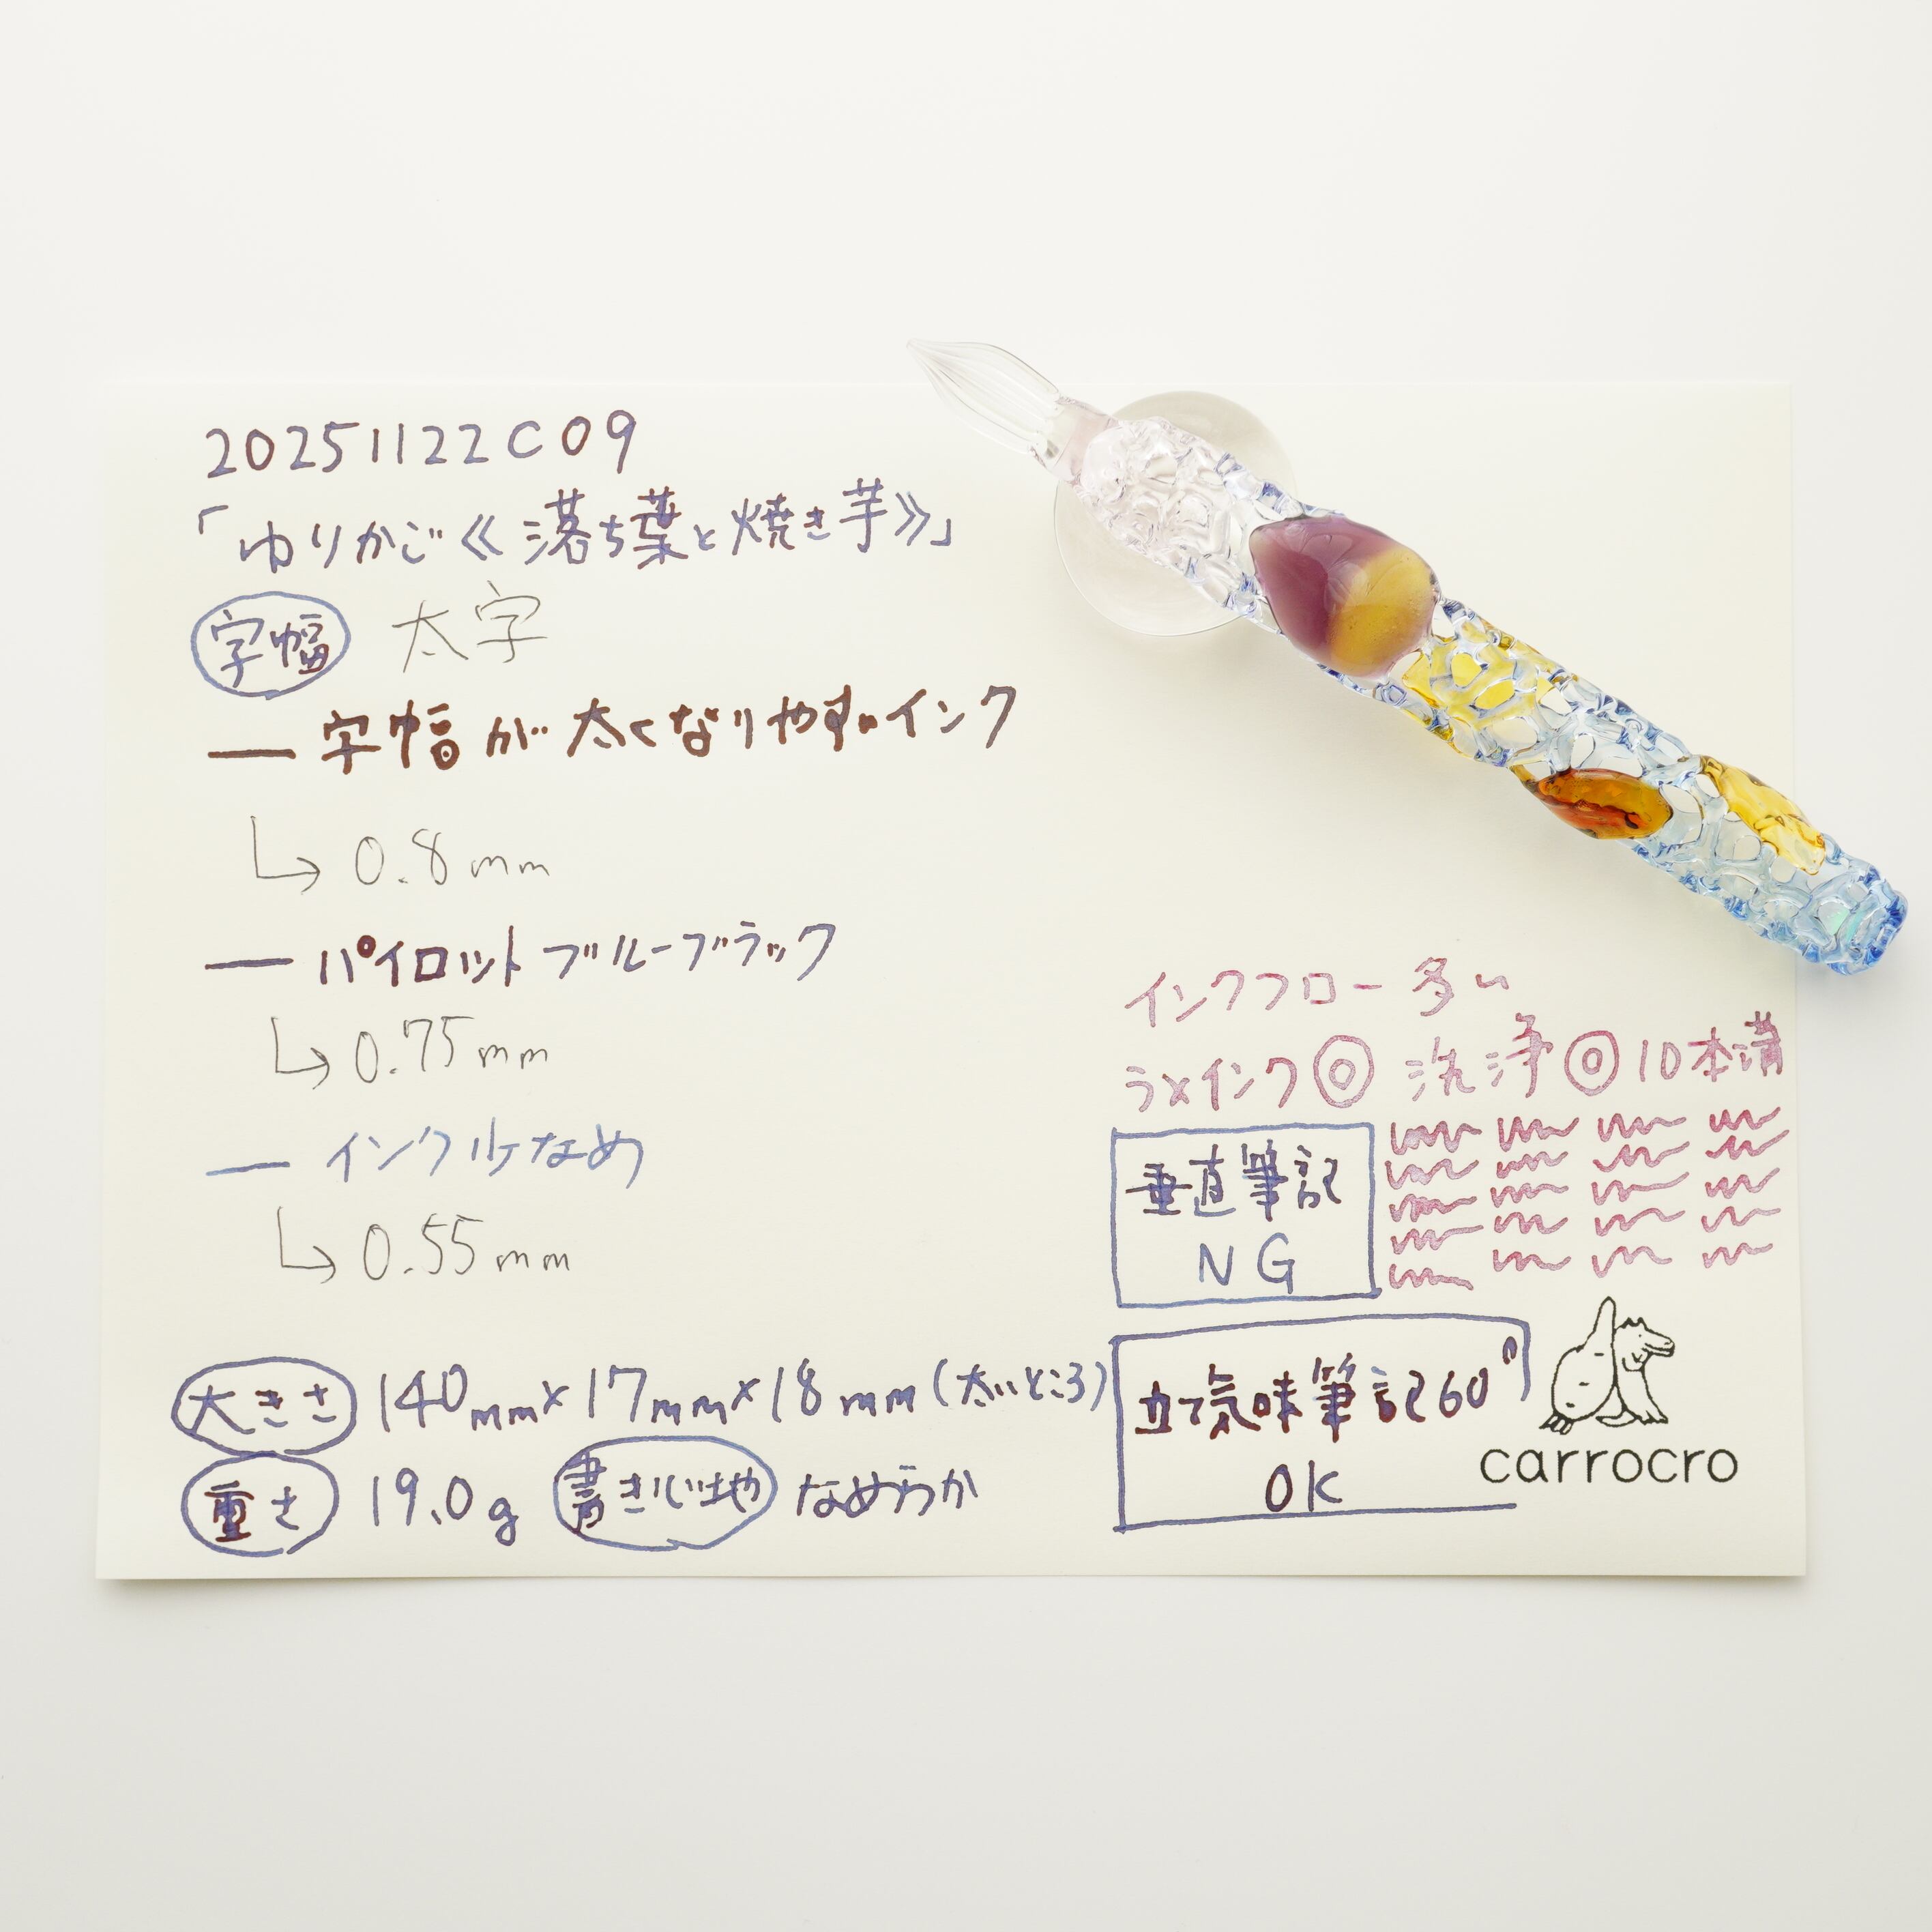 20251122C09
「ゆりかご《落ち葉と焼き芋》」
字幅 太字
字幅が太くなりやすいインク
0.8mm
パイロットブルーブラック
0.75mm
インク少なめ
0.55mm
大きさ 140mm×17mm×18mm(太いところ)
重さ 19.0g 書き心地 なめらか
インクフロー多い
ラメインク◎ 洗浄◎ 10本溝
垂直筆記
NG
立て気味筆記60°
OK
carrocro